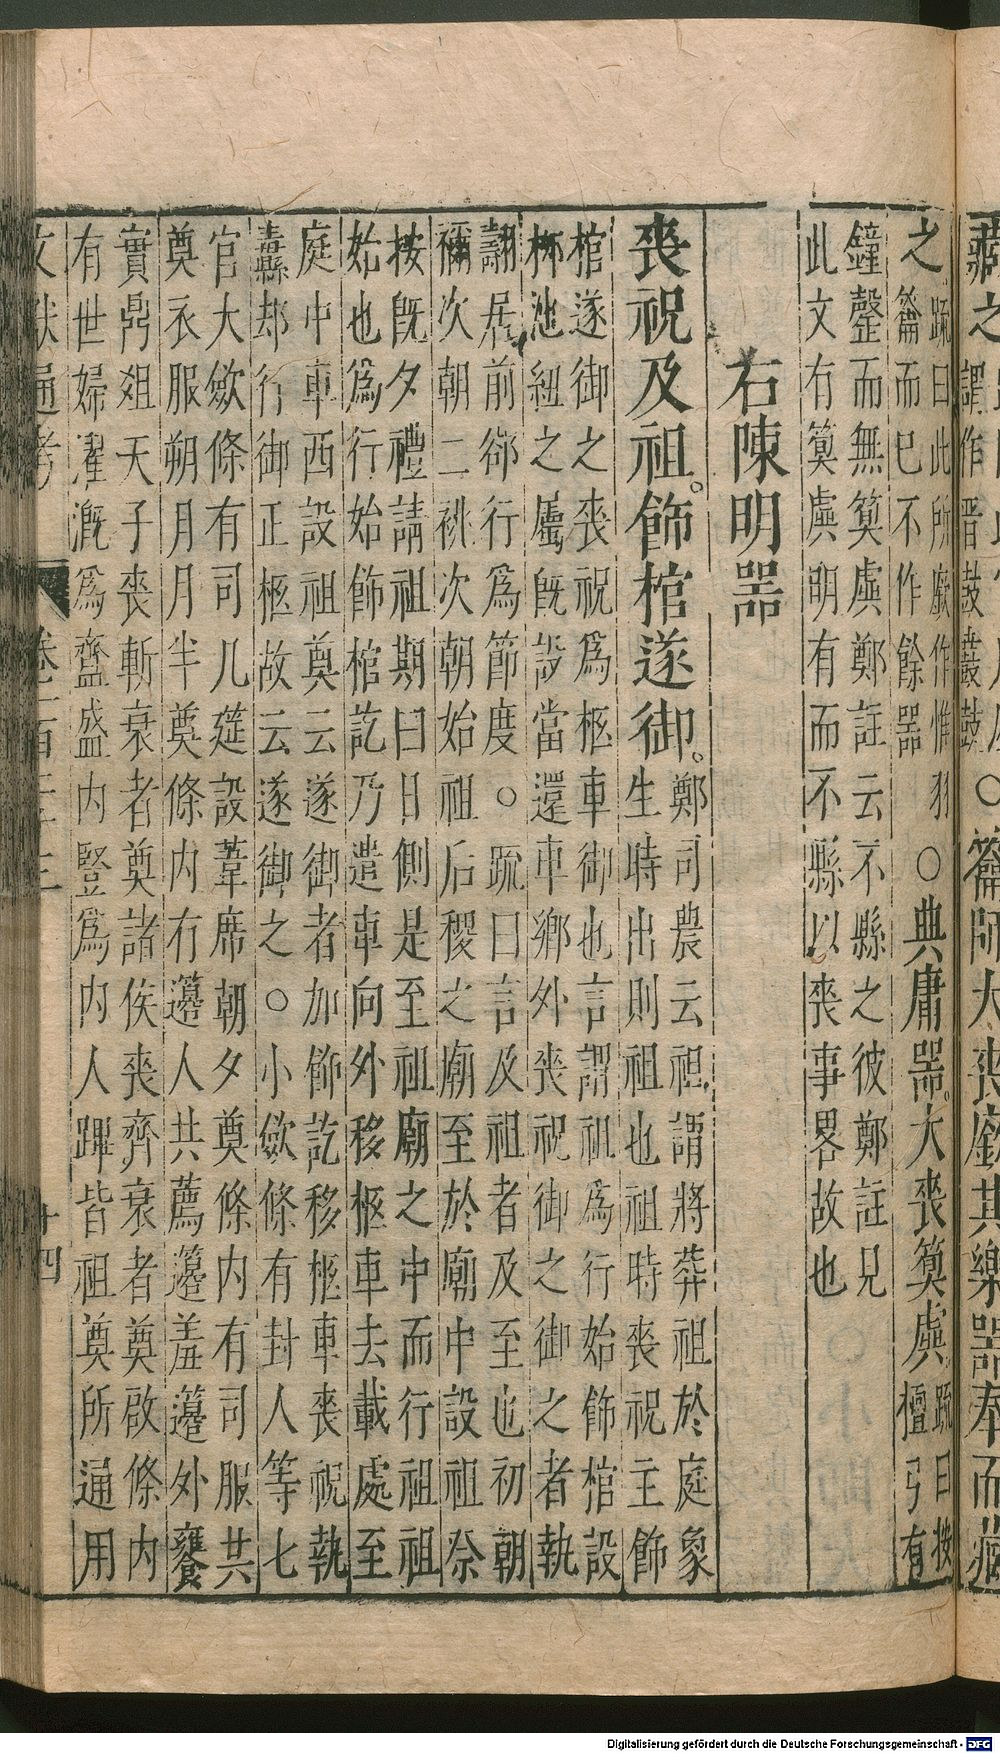 藏之
謂作晉鼓鼖鼓○籥師大喪廞其樂器奉而藏
之疏曰此所廞作惟羽
籥而已不作餘器○典庸器大喪筍虡疏曰按
檀弓有
鐘磬而無筍虡鄭註云不縣之彼鄭註見
此文有筍虡明有而不縣以喪事畧故也
右陳明器
喪祝及祖飾棺遂御鄭司農云祖謂將葬祖於庭象
生時出則祖也祖時喪祝主飾
棺遂御之喪祝為柩車御也言謂祖為行始飾棺設
柳池紐之屬旣設當還車鄉外喪祝御之御之者執
翿居前郤行為節度○疏曰言及祖者及至也初朝
禰次朝二祧次朝始祖后稷之廟至於廟中設祖祭
按旣夕禮請祖期曰日側是至祖廟之中而行祖祖
始也爲行始飾棺訖乃遣車向外移柩車去載處至
庭中車西設祖奠云遂御者加飾訖移柩車喪祝執
纛郤行御正柩故云遂御之○小歛條有封人等七
官大歛條有司几筵設葦席朝夕奠條內有司服共
奠衣服朔月月半奠條內有籩人共薦籩羞籩外饔
實鼎俎天子喪斬衰者奠諸侯喪齊衰者奠啟條內
有世婦濯溉爲齍盛內豎爲內人蹕皆祖奠所通用
文獻通考 卷一百二十三 十四
Digitalisierung gefördert durch die Deutsche Forschungsgemeinschaft - DFG